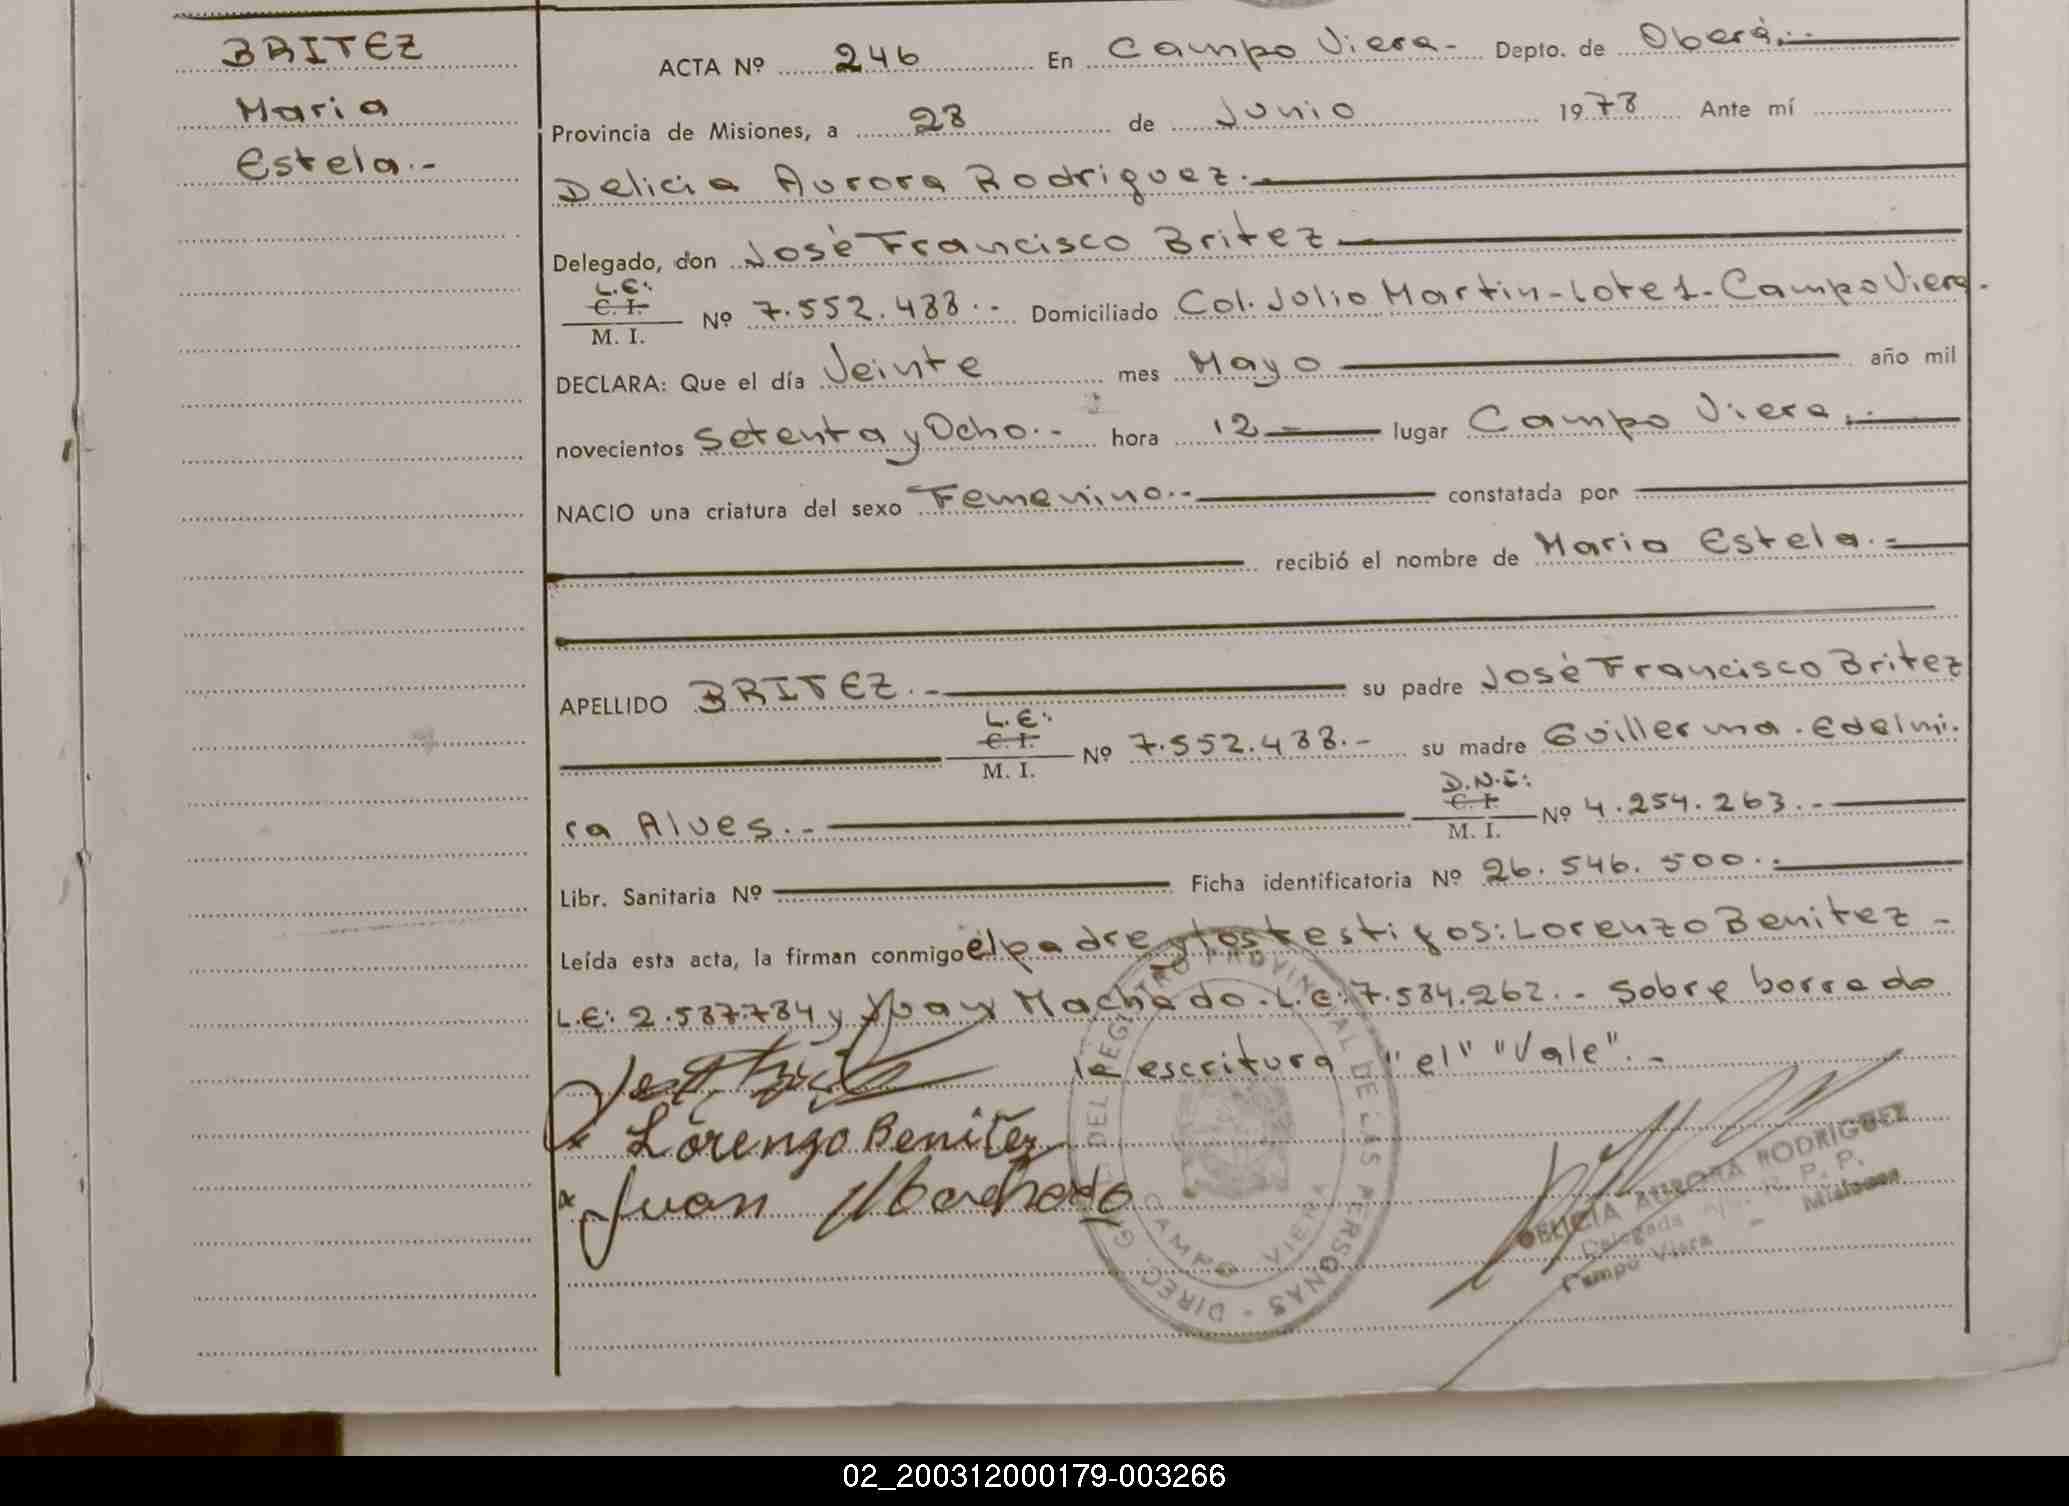 BRITEZ
Maria
Estela.-
ACTA Nº 246 En Campo Viera.- Depto. de Oberá.-
Provincia de Misiones, a 28 de Junio 1978 Ante mí
Delicia Aurora Rodriguez.-
Delegado, don José Francisco Britez
L.E:
C. I.
M. I. Nº 7.552.488.- Domiciliado Col. Julio Martin-Lote 1-Campo Viera.
DECLARA: Que el día Veinte mes Mayo año mil
novecientos Setenta y Ocho.- hora 12 lugar Campo Viera.-
NACIO una criatura del sexo Femenino.- constatada por
recibió el nombre de Maria Estela.-
APELLIDO BRITEZ.- su padre José Francisco Britez
L.E:
C. I.
M. I. Nº 7.552.488.- su madre Guillerma Edelmi-
ra Alves.- D.N.I: C. I. M. I. Nº 4.254.263.-
Libr. Sanitaria Nº Ficha identificatoria Nº 26.546.500.-
Leída esta acta, la firman conmigo el padre y los testigos: Lorenzo Benitez -
L.E: 2.587.784 y Juan Machado.L.E: 7.584.262.- Sobre borrado
la escritura "el" "Vale".-
Lorenzo Benitez
Juan Machado
DIREC. GRAL. DEL REGISTRO PROVINCIAL DE LAS PERSONAS -
CAMPO VIERA
DELICIA AURORA RODRIGUEZ
Delegada R. P. P.
Campo Viera - Misiones
02_200312000179-003266